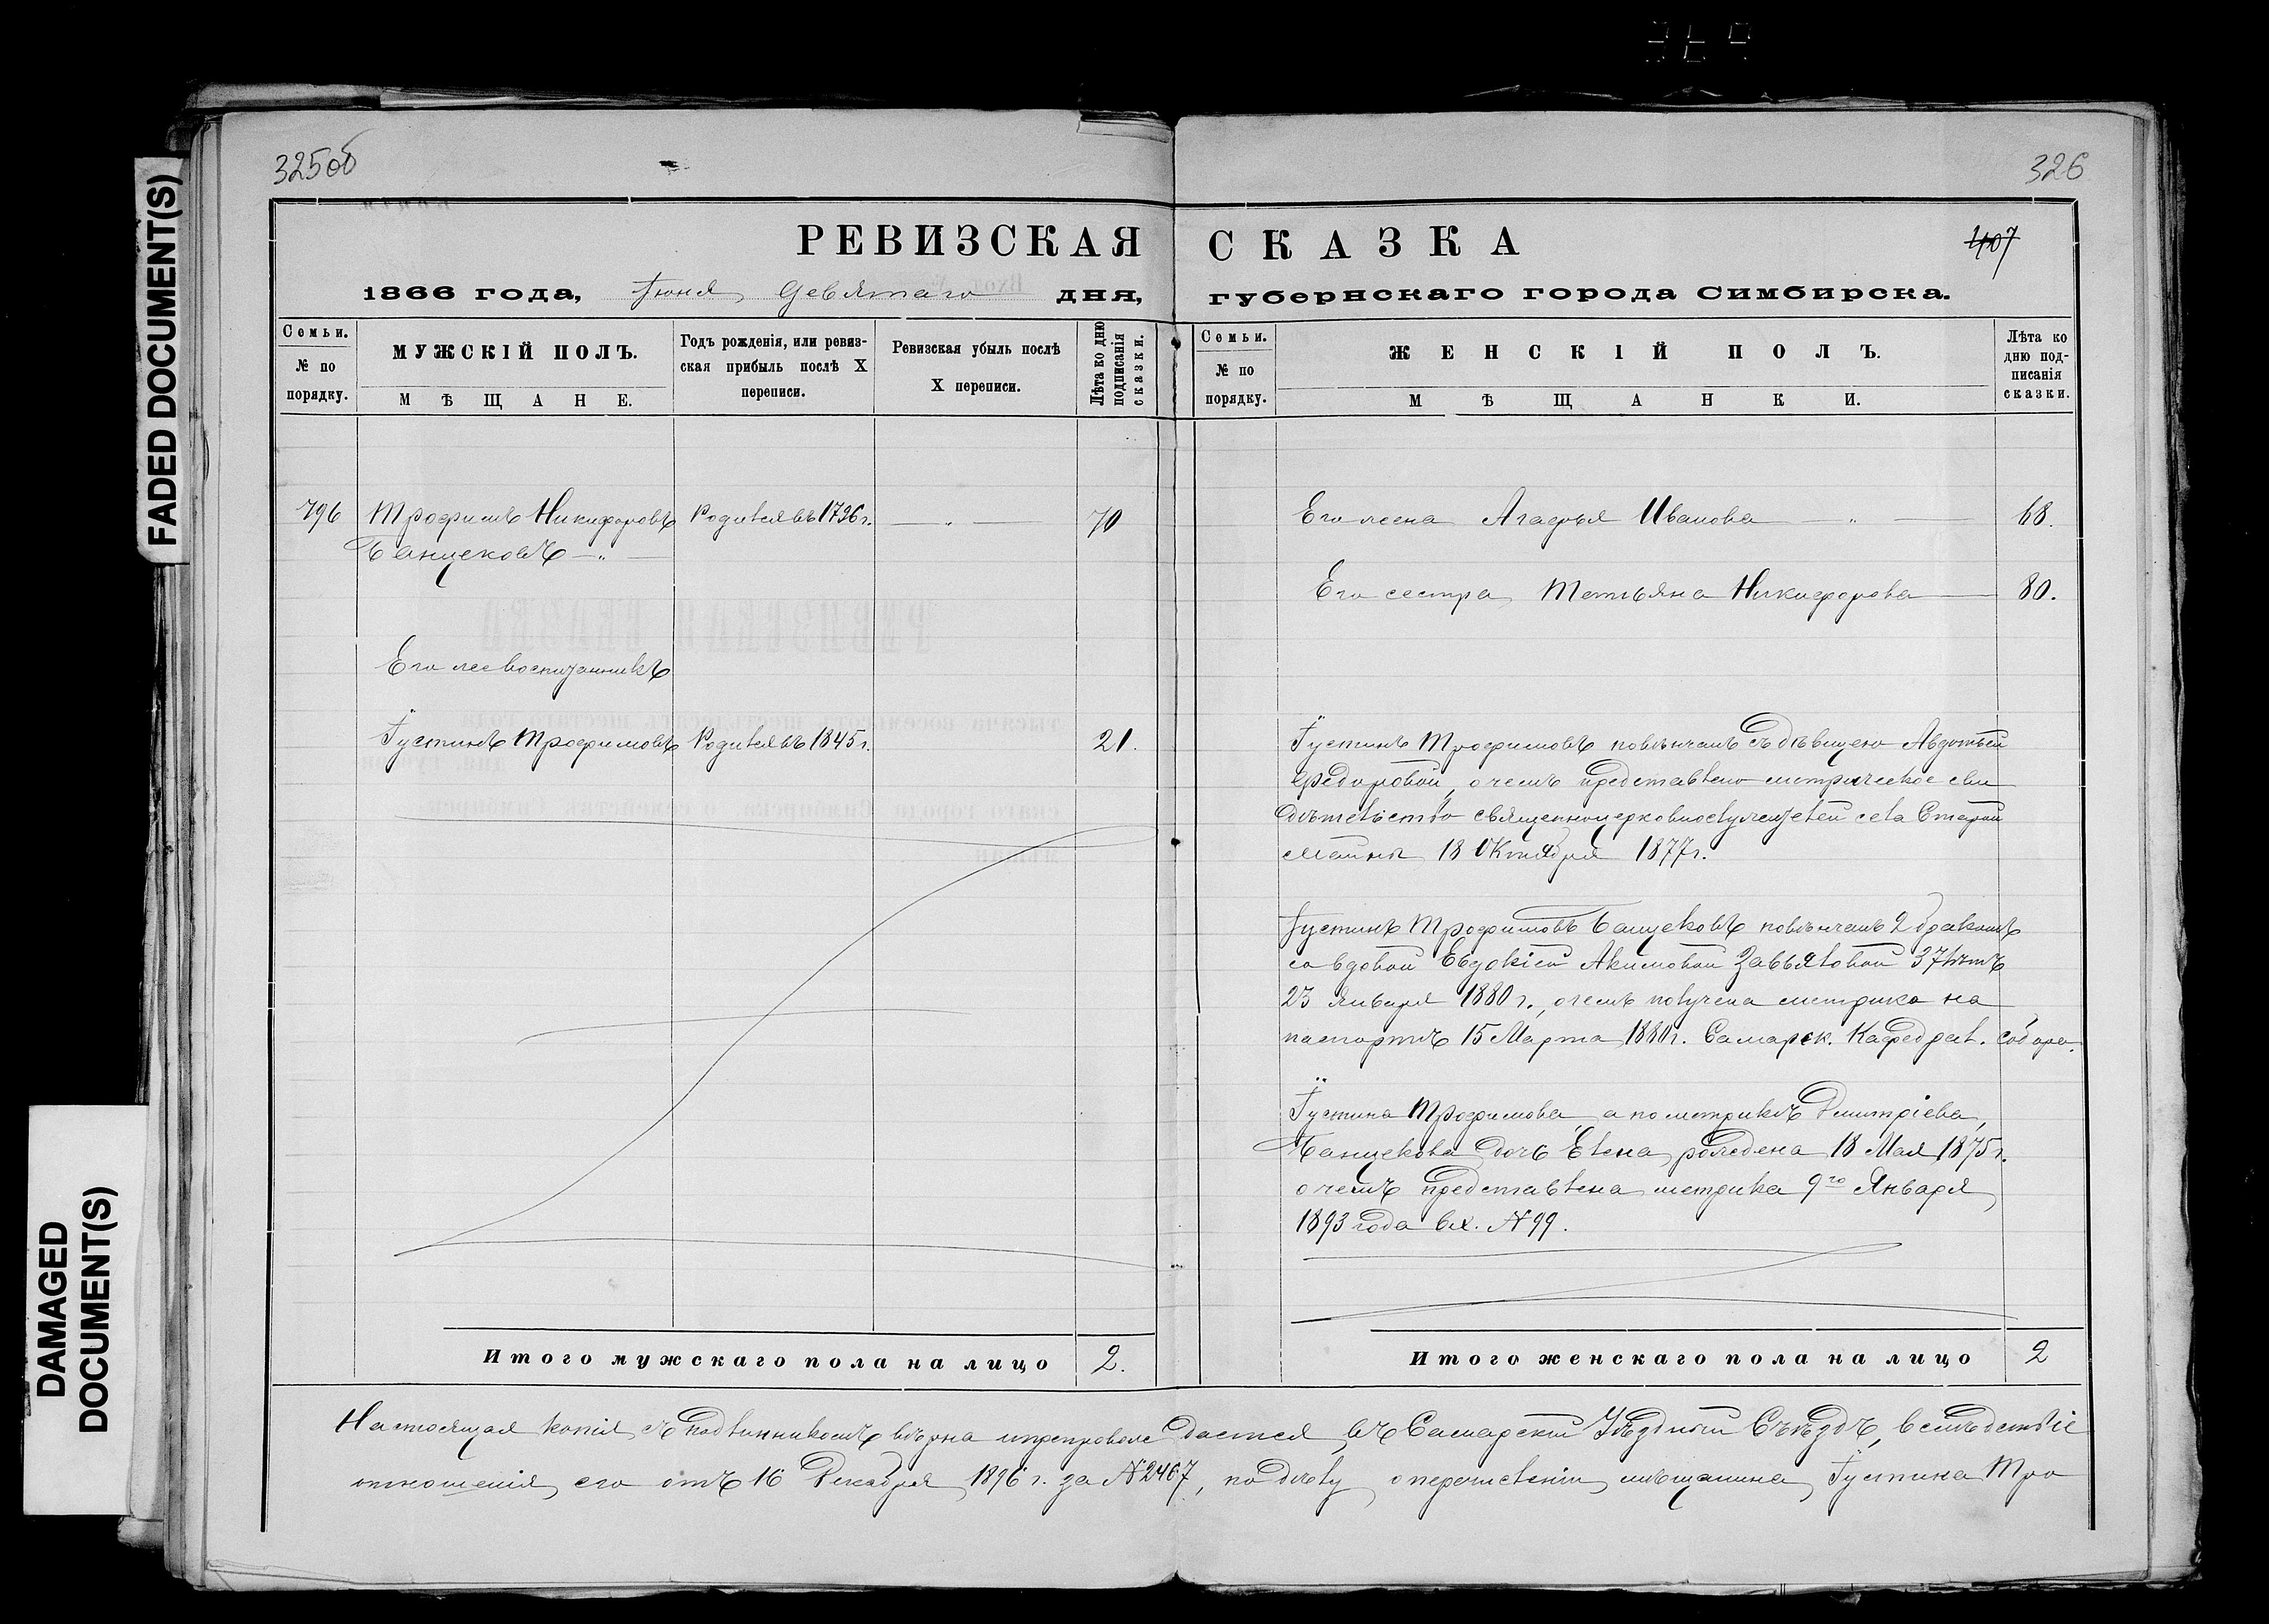 FADED DOCUMENT(S)
DAMAGED DOCUMENT(S)
325об
326
407
РЕВИЗСКАЯ СКАЗКА
1866 года, Іюня девятаго дня, губернскаго города Симбирска.
Семьи.
№ по порядку.
МУЖСКІЙ ПОЛЪ.
МѢЩАНЕ.
Годъ рожденія, или ревиз-
ская прибыль послѣ X
переписи.
Ревизская убыль послѣ
X переписи.
Лѣта ко дню
подписанія
сказки.
796 Трофимъ Никифоровъ Родился въ 1796 г. — „ — 70
Банщековъ — „ —
Его же воспитанникъ
Іустинъ Трофимовъ Родился въ 1845 г. 21.
Итого мужскаго пола на лицо 2.
Семьи.
№ по порядку.
ЖЕНСКІЙ ПОЛЪ.
МѢЩАНКИ.
Лѣта ко
дню под-
писанія
сказки.
Его жена Агафья Иванова — „ — 68.
Его сестра Татьяна Никифорова — 80.
Іустинъ Трофимовъ повѣнчанъ съ дѣвицею Авдотьей
Федоровой, о чемъ представлено метрическое сви
дѣтельство священноцерковнослужителей села Старой
Майны 18 Октября 1877 г.
Іустинъ Трофимовъ Банщековъ повѣнчанъ 2 бракомъ
со вдовой Евдокіей Акимовой Завьяловой 37 лѣтъ
23 Января 1880 г., о чемъ получена метрика на
паспортѣ 15 Марта 1880 г. Самарск. Кафедрал. собора.
Іустина Трофимова, а по метрикѣ Дмитріева,
Банщекова дочь Елена рождена 18 Мая 1875 г.
о чемъ представлена метрика 9го Января
1893 года вх. № 99.
Итого женскаго пола на лицо 2
Настоящая копія съ подлинникомъ вѣрна и препровождается въ Самарскій Уѣздный Съѣздъ, вслѣдствіе
отношенія его отъ 16 Декабря 1896 г. за № 2467, по дѣлу о перечисленіи мѣщанина Іустина Тро